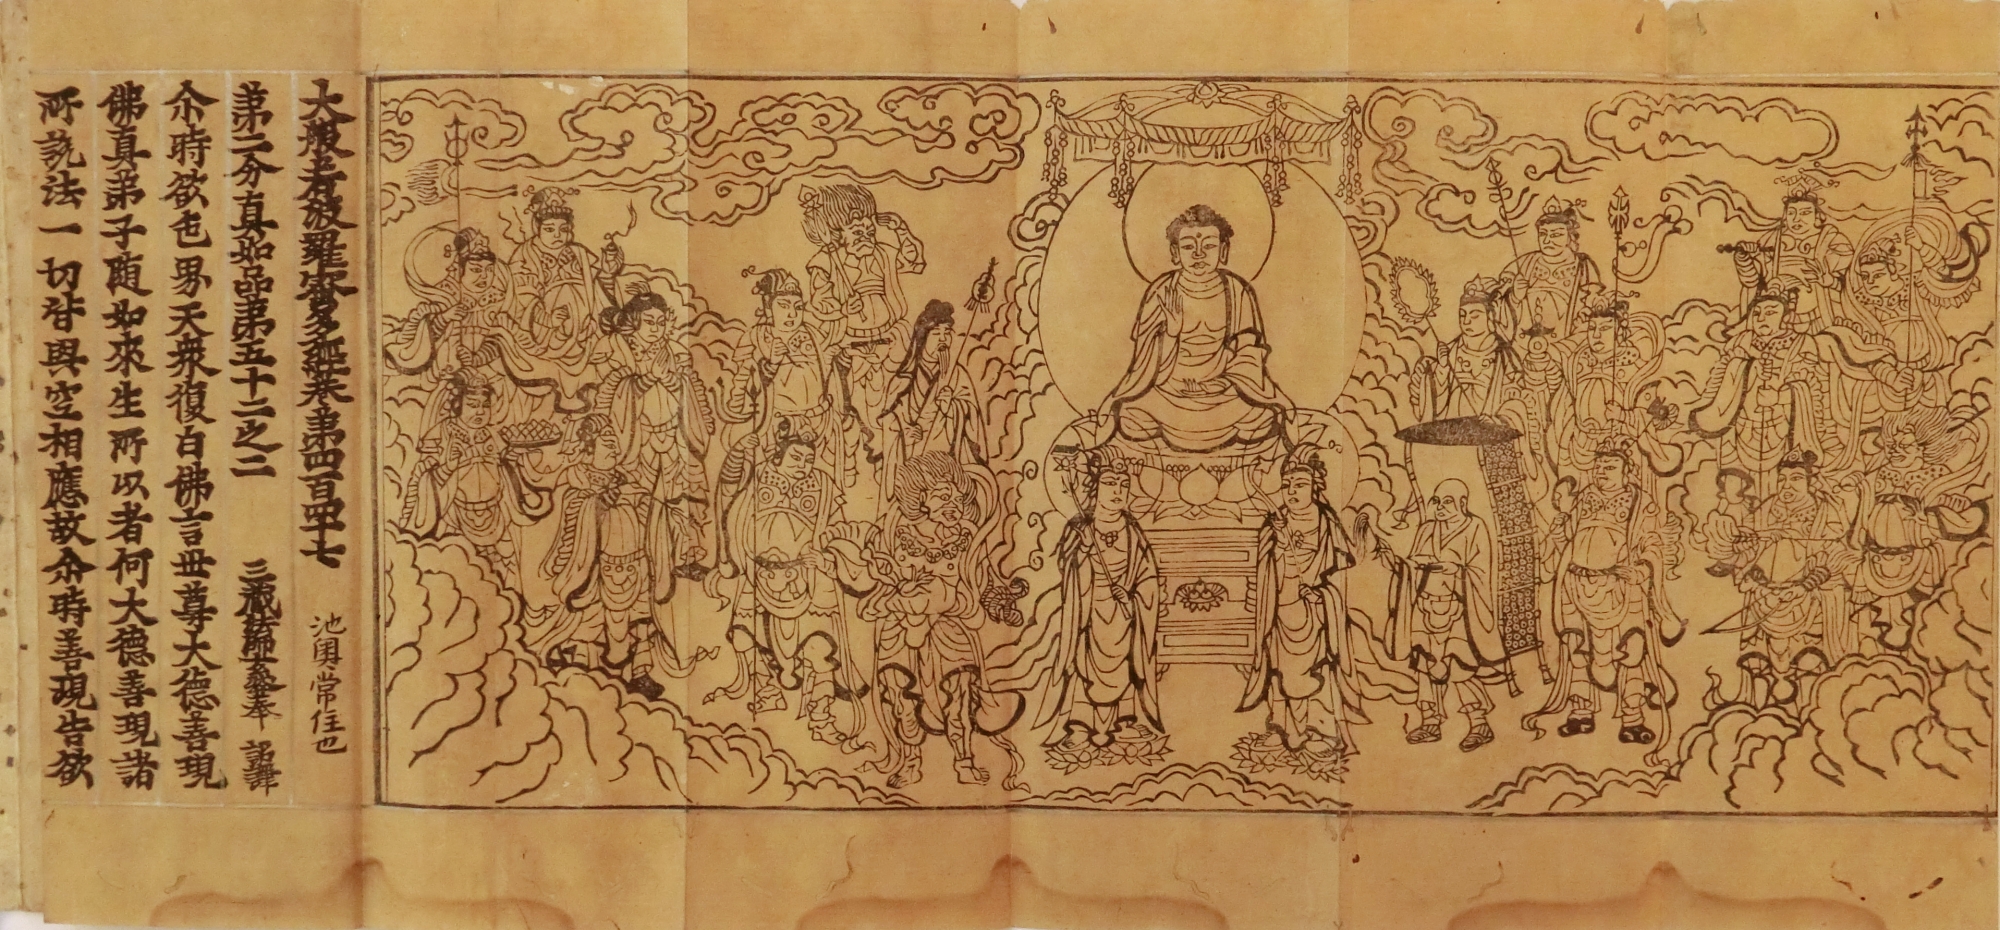 大般若波羅蜜多經卷第四百四十七
池奧常住也
第二分真如品第五十二之二 三藏法師玄奘奉 詔譯
尒時欲色界天衆復白佛言世尊大德善現
佛真弟子随如來生所以者何大德善現諸
所說法一切皆與空相應故尒時善現告欲